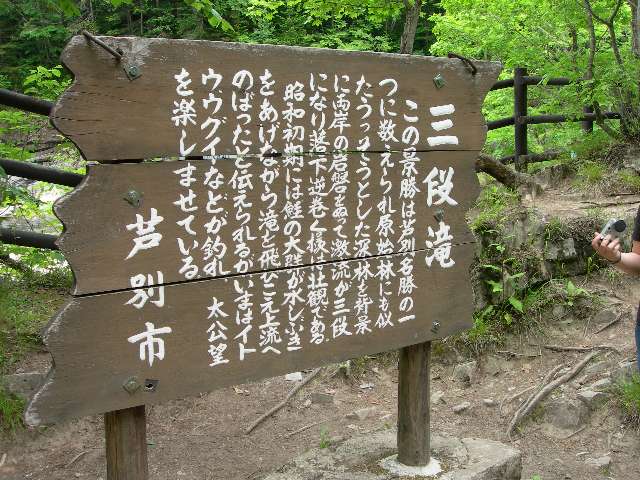 三段滝
この景勝は芦別名勝の一
つに数えられ原始林にも似
たうっそうとした深林を背景
に両岸の岩盤をぬって激流が三段
になり落下逆巻く様は壮観である
昭和初期には鮭の大群が水しぶき
をあげながら滝を飛びこえ上流へ
のぼったと伝えられるがいまはイト
ウウグイなどが釣れ 太公望
を楽しませている
芦別市